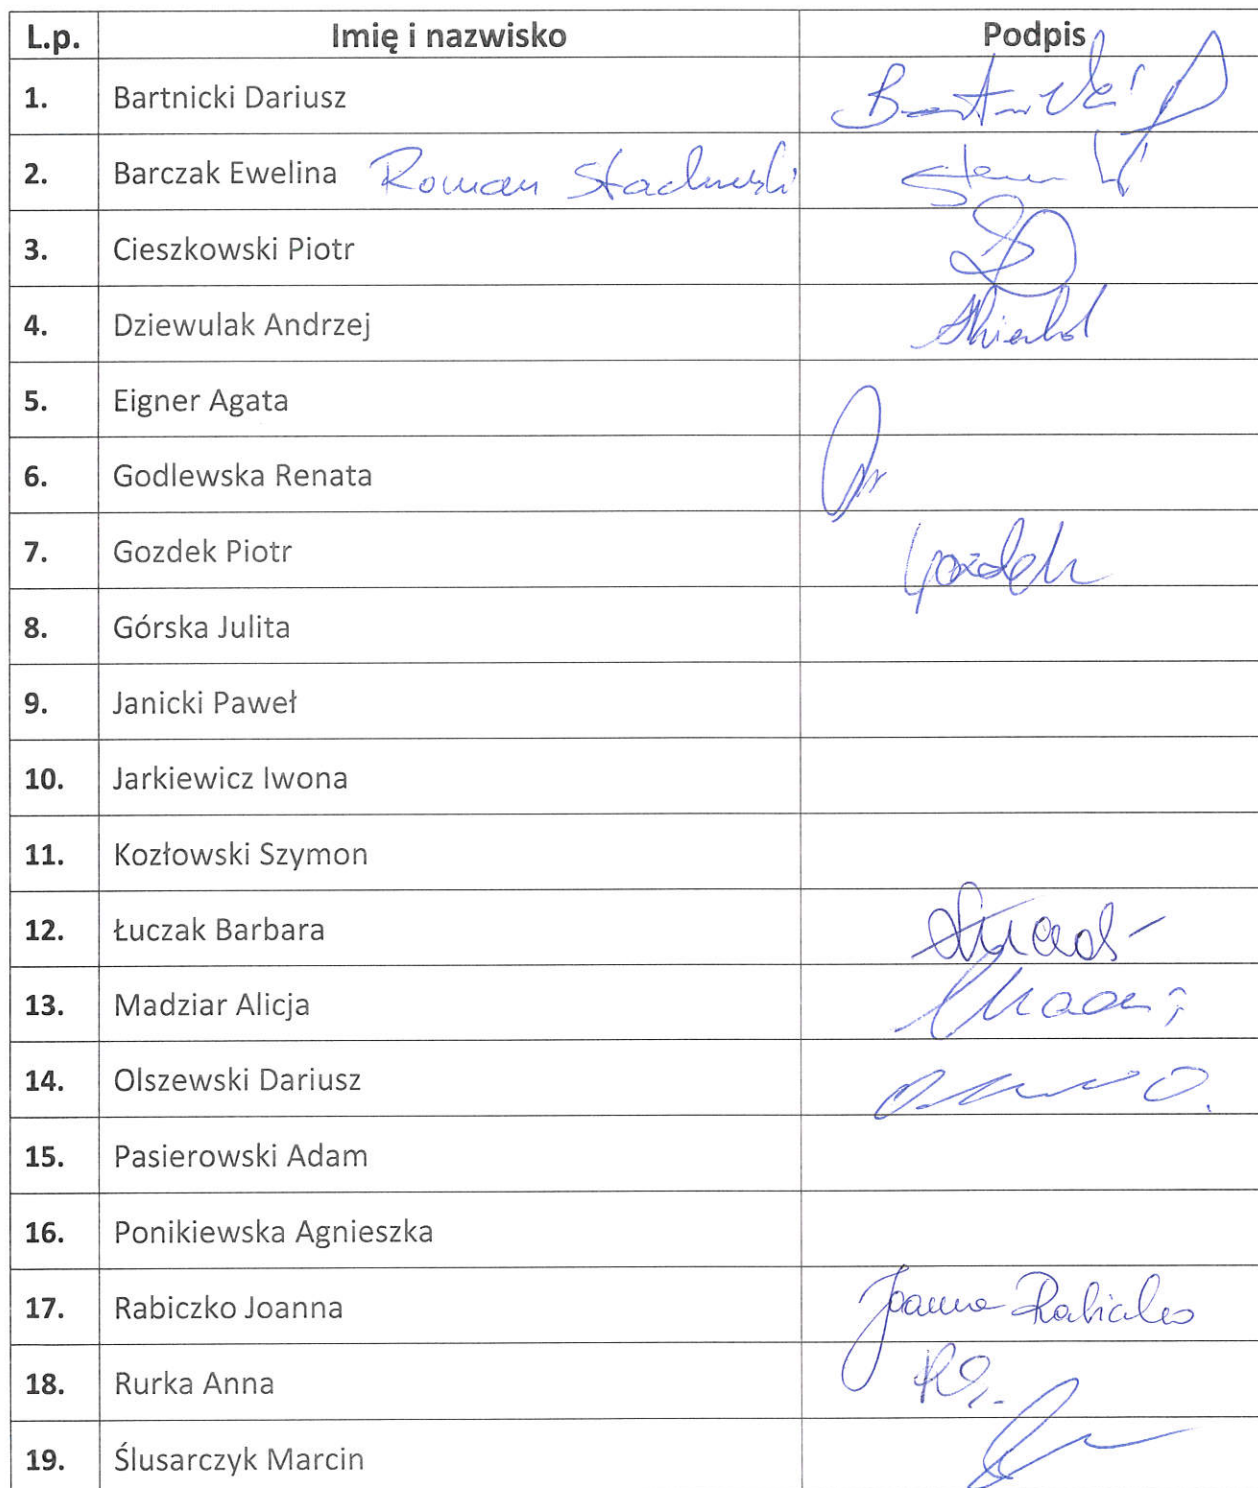 L.p. Imię i nazwisko Podpis
1. Bartnicki Dariusz Bartnicki
2. Barczak Ewelina Roman Stachurski
3. Cieszkowski Piotr
4. Dziewulak Andrzej
5. Eigner Agata
6. Godlewska Renata
7. Gozdek Piotr Gozdek
8. Górska Julita
9. Janicki Paweł
10. Jarkiewicz Iwona
11. Kozłowski Szymon
12. Łuczak Barbara
13. Madziar Alicja
14. Olszewski Dariusz
15. Pasierowski Adam
16. Ponikiewska Agnieszka
17. Rabiczko Joanna Joanna Rabiczko
18. Rurka Anna
19. Ślusarczyk Marcin